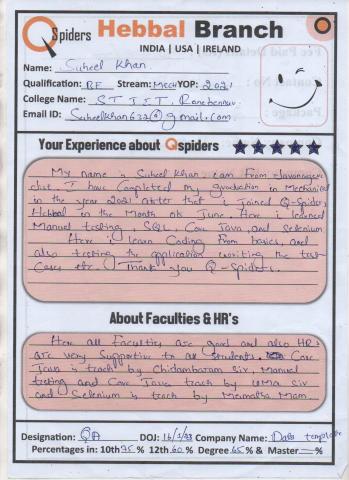 Qspiders Hebbal Branch
INDIA | USA | IRELAND
Name: Suheel Khan.
Qualification: BE Stream: Mech YOP: 2021
College Name: STJIT, Ranebennur
Email ID: Suheelkhan632@gmail.com
Your Experience about Qspiders
My name is Suheel Khan. iam From davanagere
dist. I have Completed my graduation in Mechanical
in the year 2021 after that i joined Q-Spider,
Hebbal in the Month of June. Here i learned
Manual testing, SQL, Core Java, and selenium
Here i learn Coding From basics, and
also testing the application writing the test
Cases etc. Thank you Q-Spiders.
About Faculties & HR's
Here all Faculties are good and also HR's
are very Supportive to all Students. Core
Java is teach by Chidambaram Sir, Manual
testing and Core Java teach by Uma Sir
and Selenium is teach by Mam.
Designation: QA DOJ: 16/1/23 Company Name: Data
Percentages in: 10th 95 % 12th 60 % Degree 65 % & Master — %